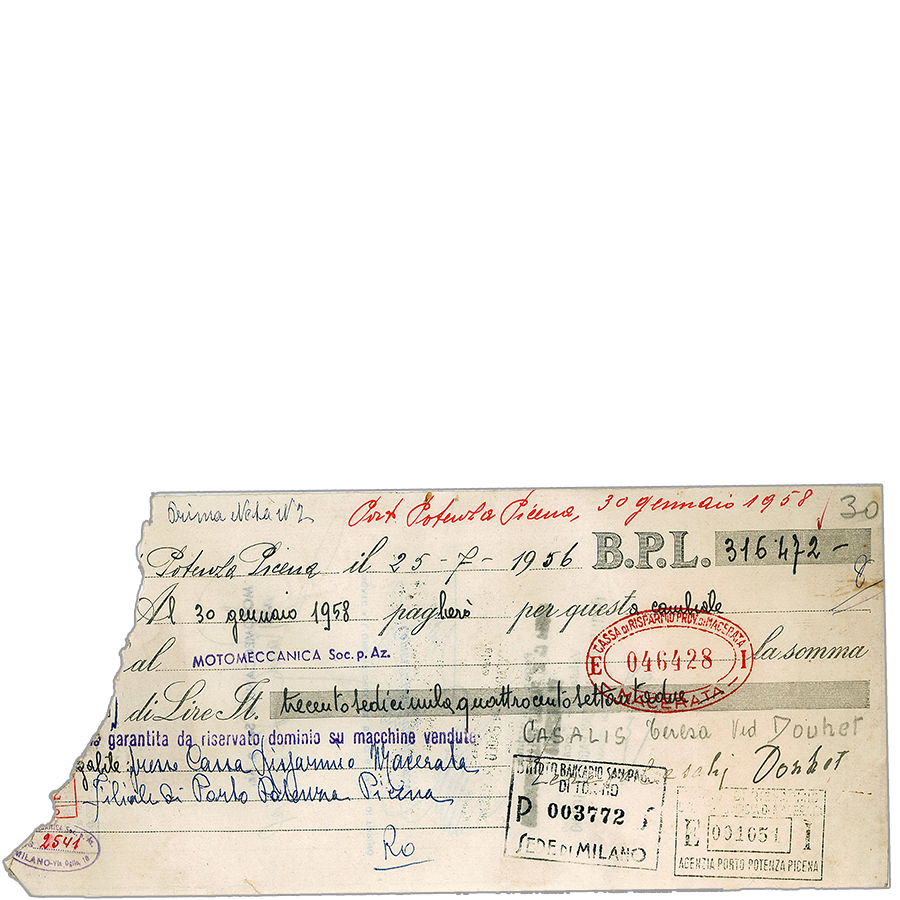 Prima Nota N° 2
Port. Potenza Picena, 30 gennaio 1958
30
Potenza Picena il 25-7-1956 B.P.L. 316472-
8
Al 30 gennaio 1958 pagherò per questa cambiale
al MOTOMECCANICA Soc. p. Az. la somma
CASSA DI RISPARMIO PROV. DI MACERATA
E 046428 I
MACERATA
di Lire It. trecentosedicimilaquattrocentosettantadue
garantita da riservato dominio su macchine vendute
CASALIS Teresa Ved Douhet
presso Cassa Risparmio Macerata
Filiale di Porto Potenza Picena
Douhet
ISTITUTO BANCARIO SAN PAOLO
DI TORINO
P 003772
SEDE DI MILANO
E 001051 I
AGENZIA PORTO POTENZA PICENA
Soc. p. Az.
2541
MILANO - Via Oglio, 18
Ro